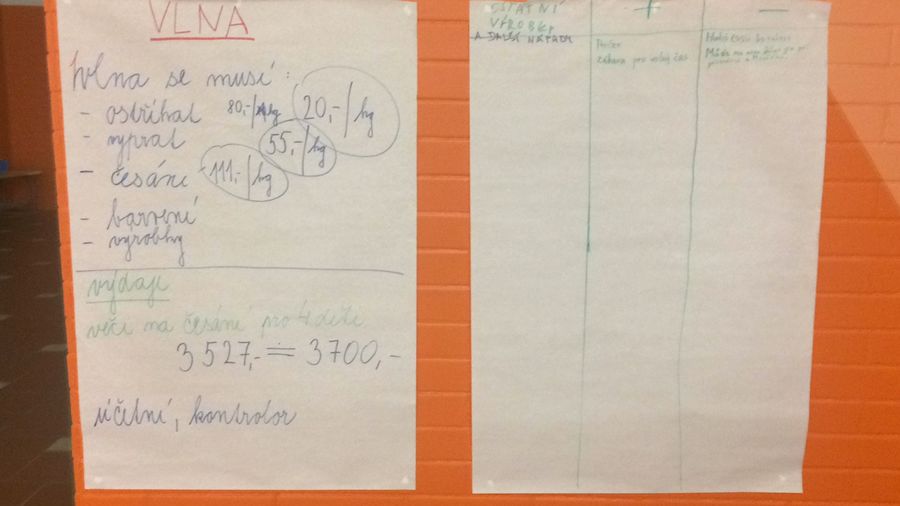 VLNA
Vlna se musí:
- ostříhat 80,-/kg 20,-/kg
- vyprat 55,-/kg
- česání 111,-/kg
- barvení
- vyrobky
výdaje
věci na česání pro 4 děti
3 527,- ≐ 3700,-
účetní, kontrolor
OSTATNÍ + —
VÝROBKY
A DALŠÍ NÁPADY
Peníze
zábava pro volný čas